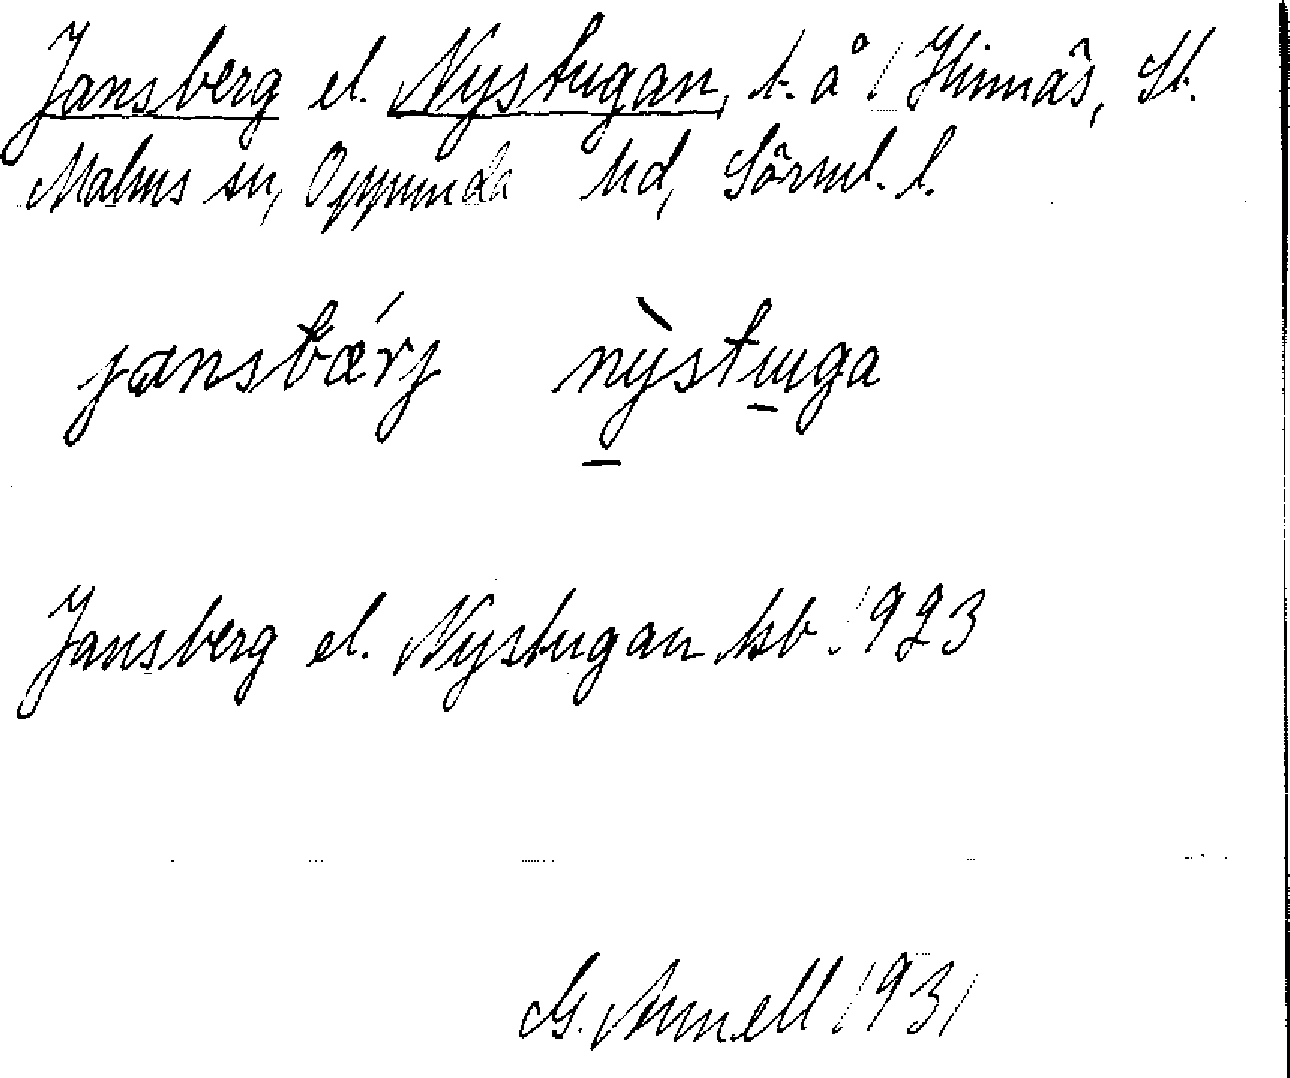 Jansberg el. Nystugan, t. å 1 Hinnäs, St.
Malms sn, Oppunda hd, Sörml. l.
jansbǽrj nỳstuga
Jansberg el. Nystugan kb. 1923
G. Annell 1931